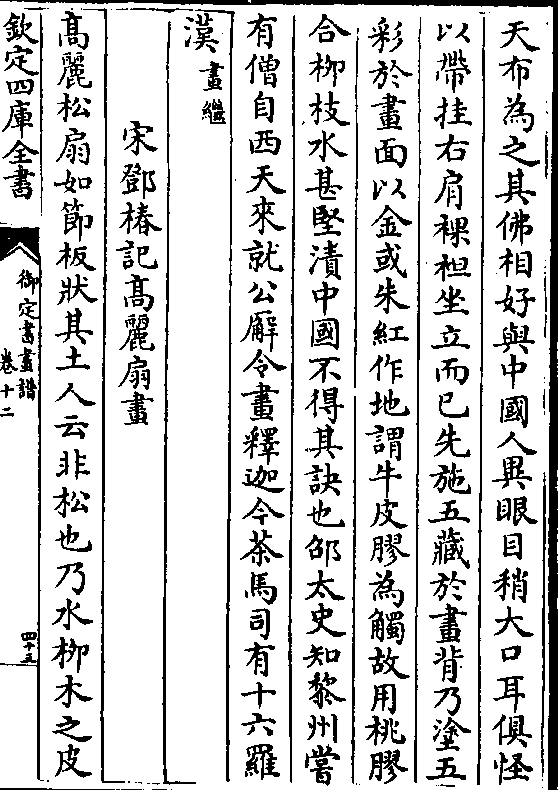 天布為之其佛相好與中國人異眼目稍大口耳俱怪
以帶挂右肩裸袒坐立而已先施五藏於畫背乃塗五
彩於畫面以金或朱紅作地謂牛皮膠為觸故用桃膠
合柳枝水甚堅漬中國不得其訣也邵太史知黎州嘗
有僧自西天來就公廨令畫釋迦今茶馬司有十六羅
漢畫繼
宋鄧椿記髙麗扇畫
髙麗松扇如節板狀其土人云非松也乃水柳木之皮
欽定四庫全書
御定書畫譜
卷十二
四十五